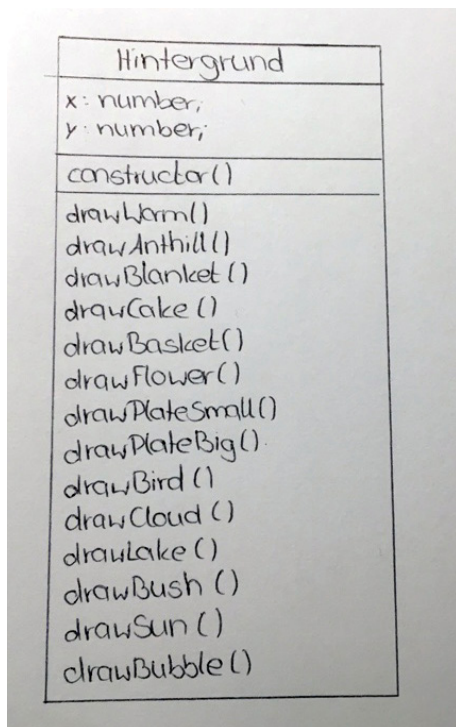 Hintergrund
x: number;
y: number;
constructor()
drawWorm()
drawAnthill()
drawBlanket()
drawCake()
drawBasket()
drawFlower()
drawPlateSmall()
drawPlateBig()
drawBird()
drawCloud()
drawLake()
drawBush()
drawSun()
drawBubble()